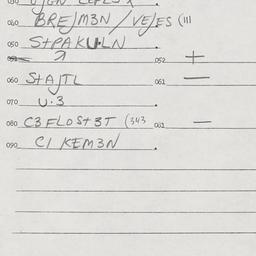 040 BREJM3N / VEJES (111
050 StPAKULN .
052 +
060 StAJTL .
061 —
070 U.3 .
080 C3 FLOSt3T (343
081 —
090 CI KEM3N .